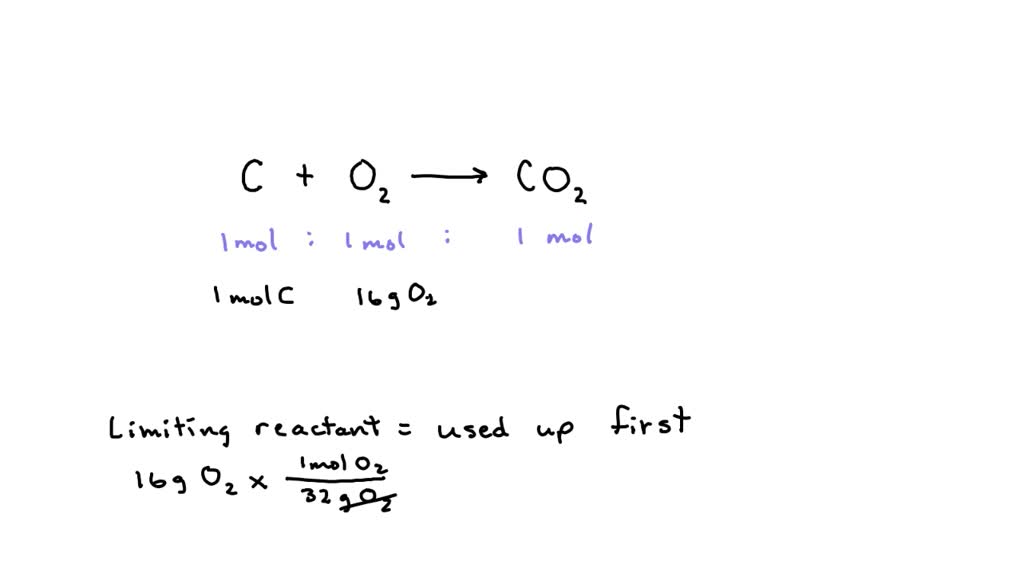 C + O₂ ⟶ CO₂
1 mol : 1 mol : 1 mol
1 mol C 16 g O₂
Limiting reactant = used up first
16 g O₂ × 1 mol O₂ / 32 g O₂